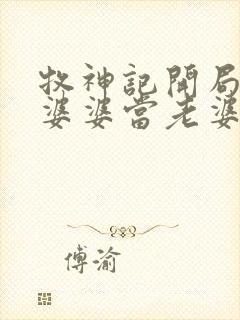 牧神記開局
婆婆當老婆
傅渝